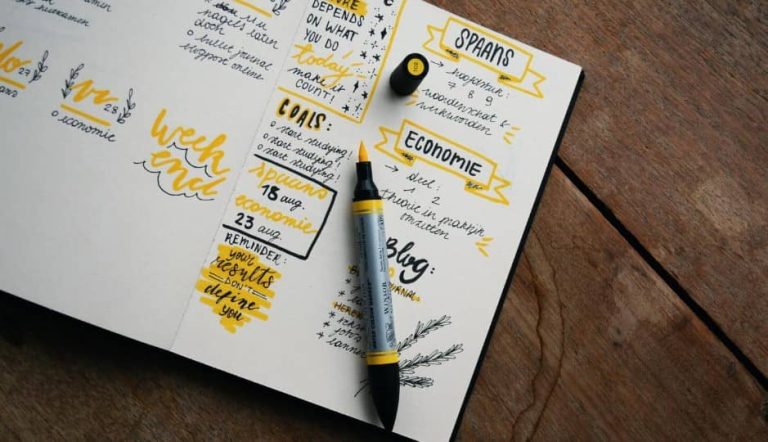 nagels laten
doen
o bullet journal
blogpost online
vr
28
o economie
week
end
DEPENDS
ON WHAT
YOU DO!
today
make it
COUNT!
GOALS:
o start studying!
o start studying!
o start studying!
spaans
18 aug.
economie
23 aug.
REMINDER:
your
results
DON'T
define
you
SPAANS
→ hoofdstuk:
7 8 9
woordenschat &
werkwoorden
ECONOMIE
→ deel:
1 2
theorie in praktijk
omzetten
Blog:
WINSOR